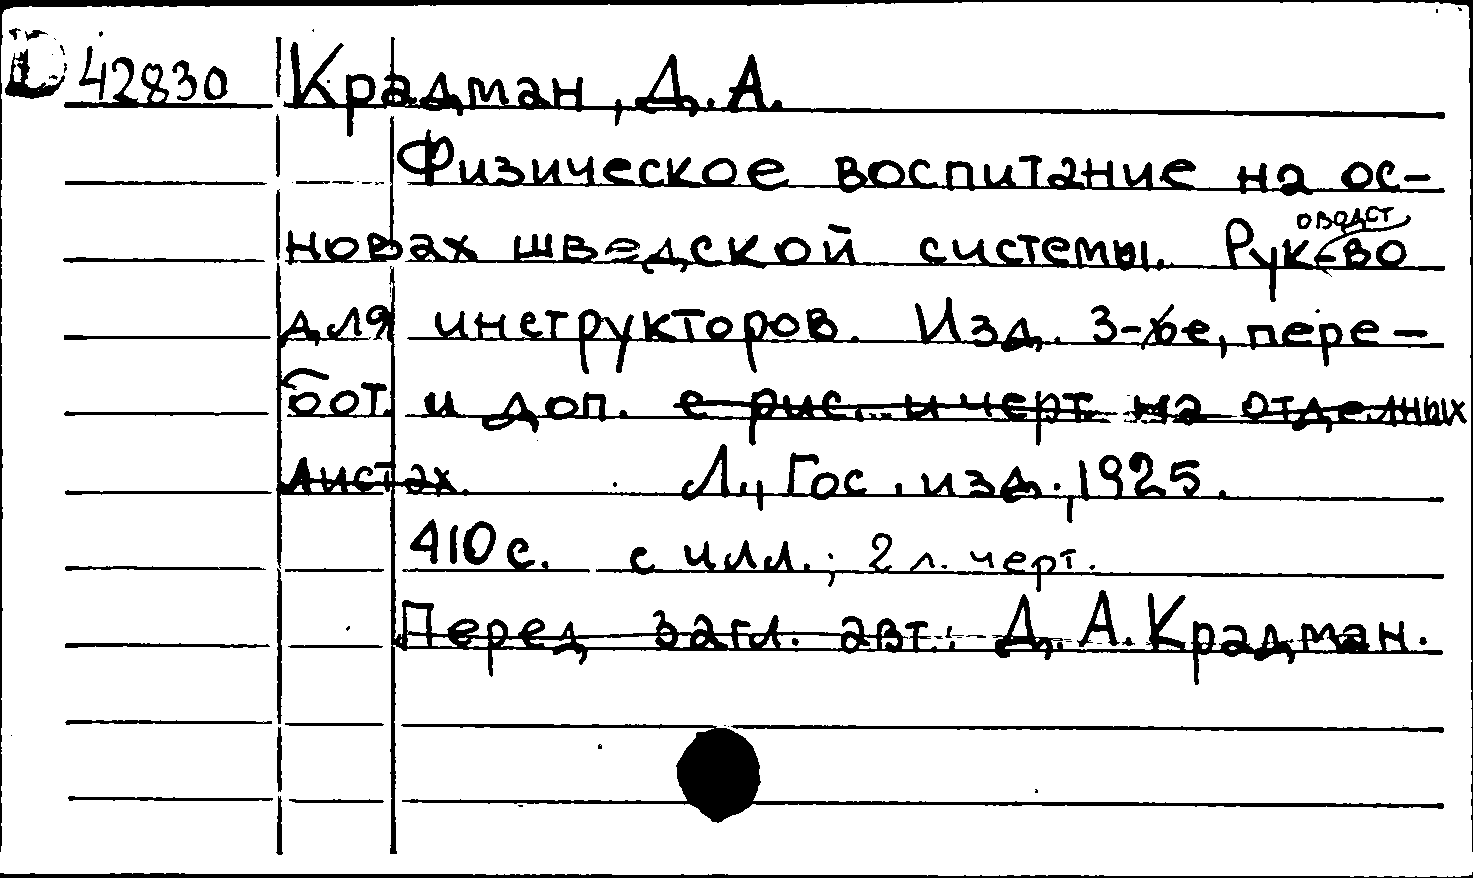 D 42830 Крадман, Д. А.
Физическое воспитание на ос-
новах шведской системы. Руководство
для инструкторов. Изд. 3-е, пере-
бот. и доп. с рис. и черт. на отделных
листах. Л., Гос. изд., 1925.
410 с. с илл.; 2 л. черт.
Перед загл. авт.: Д. А. Крадман.